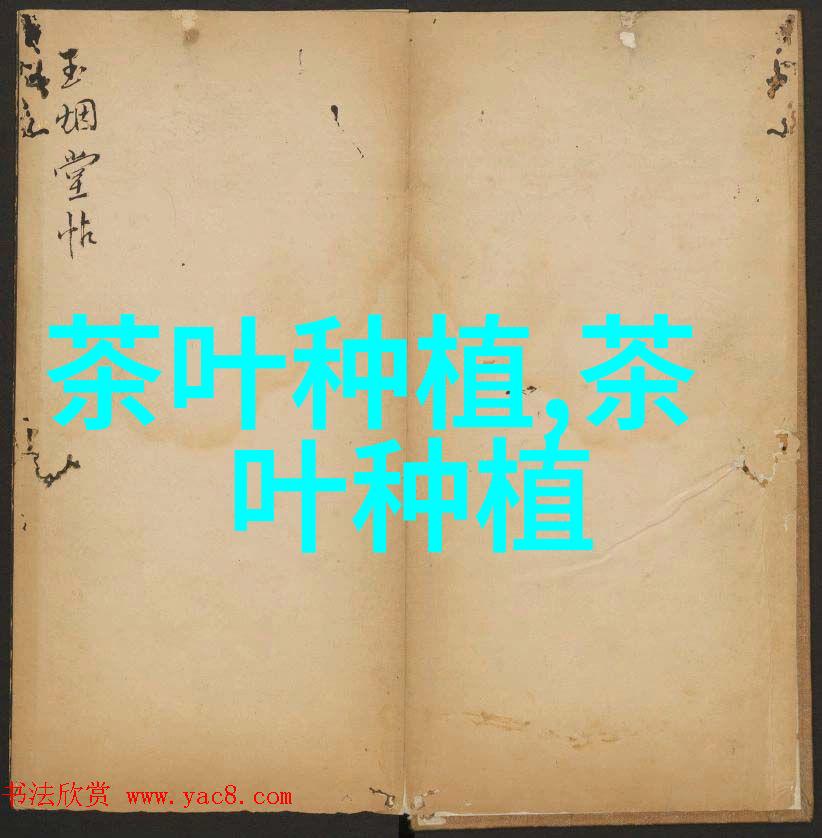 玉烟堂帖
茶叶种植,茶
叶种植
书法欣赏 www.yac8.com